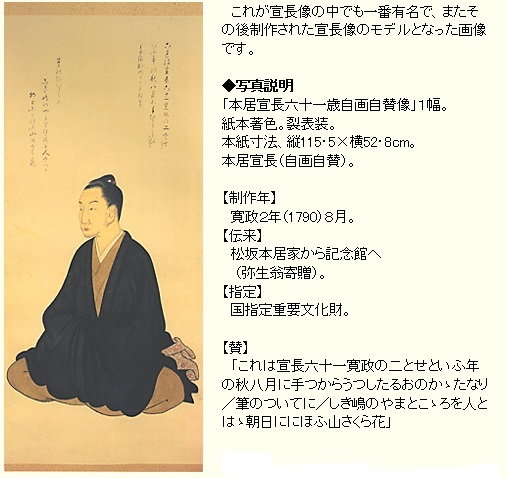 これが宣長像の中でも一番有名で、またそ
の後制作された宣長像のモデルとなった画像
です。
◆写真説明
「本居宣長六十一歳自画自賛像」１幅。
紙本著色。裂表装。
本紙寸法、縦115・5×横52・8cm。
本居宣長（自画自賛）。
【制作年】
寛政２年（1790）８月。
【伝来】
松坂本居家から記念館へ
（弥生翁寄贈）。
【指定】
国指定重要文化財。
【賛】
「これは宣長六十一寛政の二とせといふ年
の秋八月に手つからうつしたるおのかゝたなり
／筆のついてに／しき嶋のやまとこゝろを人と
はゝ朝日ににほふ山さくら花」